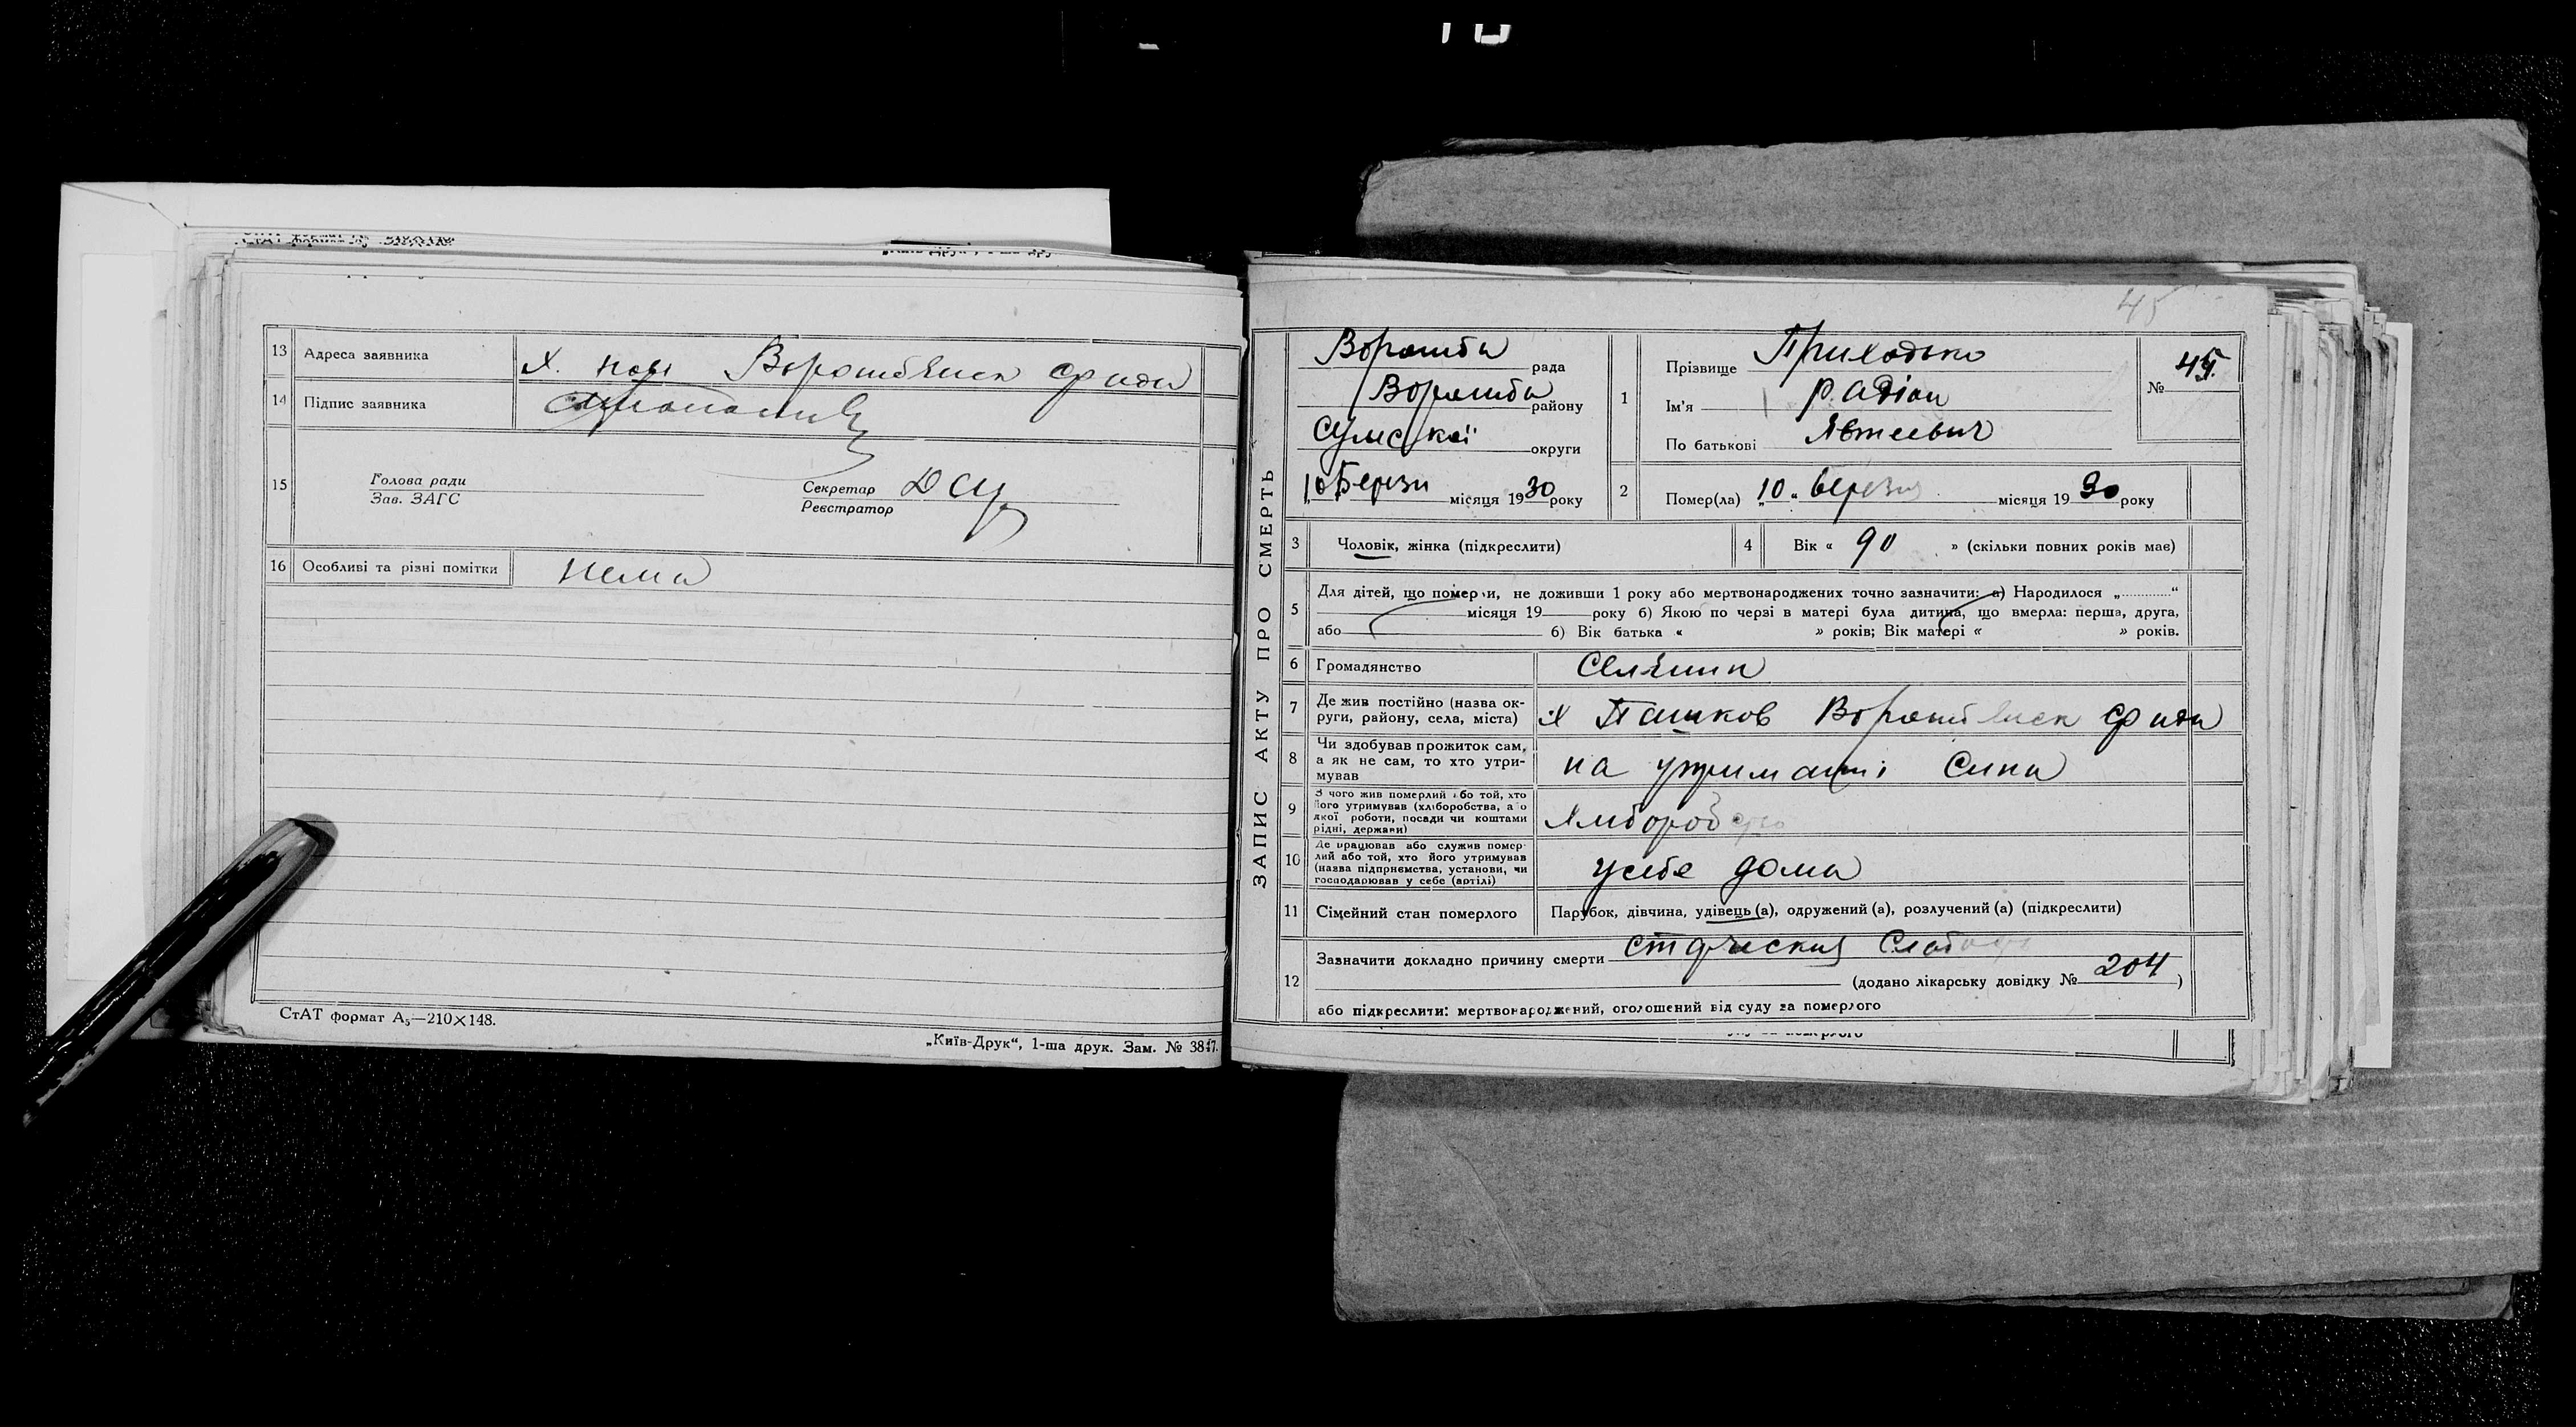 13 Адреса заявника х. нові Ворожбянск с ради
14 Підпис заявника
15 Голова ради
Зав. ЗАГС
Секретар
Реєстратор
16 Особливі та різні помітки нема
СтАТ формат А₅—210×148.
„Київ-Друк“, 1-ша друк. Зам. №
45
ЗАПИС АКТУ ПРО СМЕРТЬ
Ворожба рада
Ворожба району
Сумської округи
„10 Березн місяця 1930 року
1 Прізвище Приходько
Ім'я Радіон
По батькові Явтеевич
№ 45
2 Помер(ла) „10“ березня місяця 1930 року
3 Чоловік, жінка (підкреслити)
4 Вік « 90 » (скільки повних років має)
5 Для дітей, що померли, не доживши 1 року або мертвонароджених точно зазначити: а) Народилося „............“
місяця 19 року б) Якою по черзі в матері була дитина, що вмерла: перша, друга,
або б) Вік батька « » років; Вік матері « » років.
6 Громадянство Селянин
7 Де жив постійно (назва ок-
руги, району, села, міста) х Пашков Ворожбянск с ради
8 Чи здобував прожиток сам,
а як не сам, то хто утри-
мував на утриманні сина
9 З чого жив померлий або той, хто
його утримував (хліборобства, або
якої роботи, посади чи коштами
рідні, держави) хліборобство
10 Де працював або служив помер-
лий або той, хто його утримував
(назва підприємства, установи, чи
господарював у себе (артілі) у себе дома
11 Сімейний стан померлого Парубок, дівчина, удівець (а), одружений (а), розлучений (а) (підкреслити)
12 Зазначити докладно причину смерти старческая слабость
(додано лікарську довідку № 204)
або підкреслити: мертвонароджений, оголошений від суду за померлого